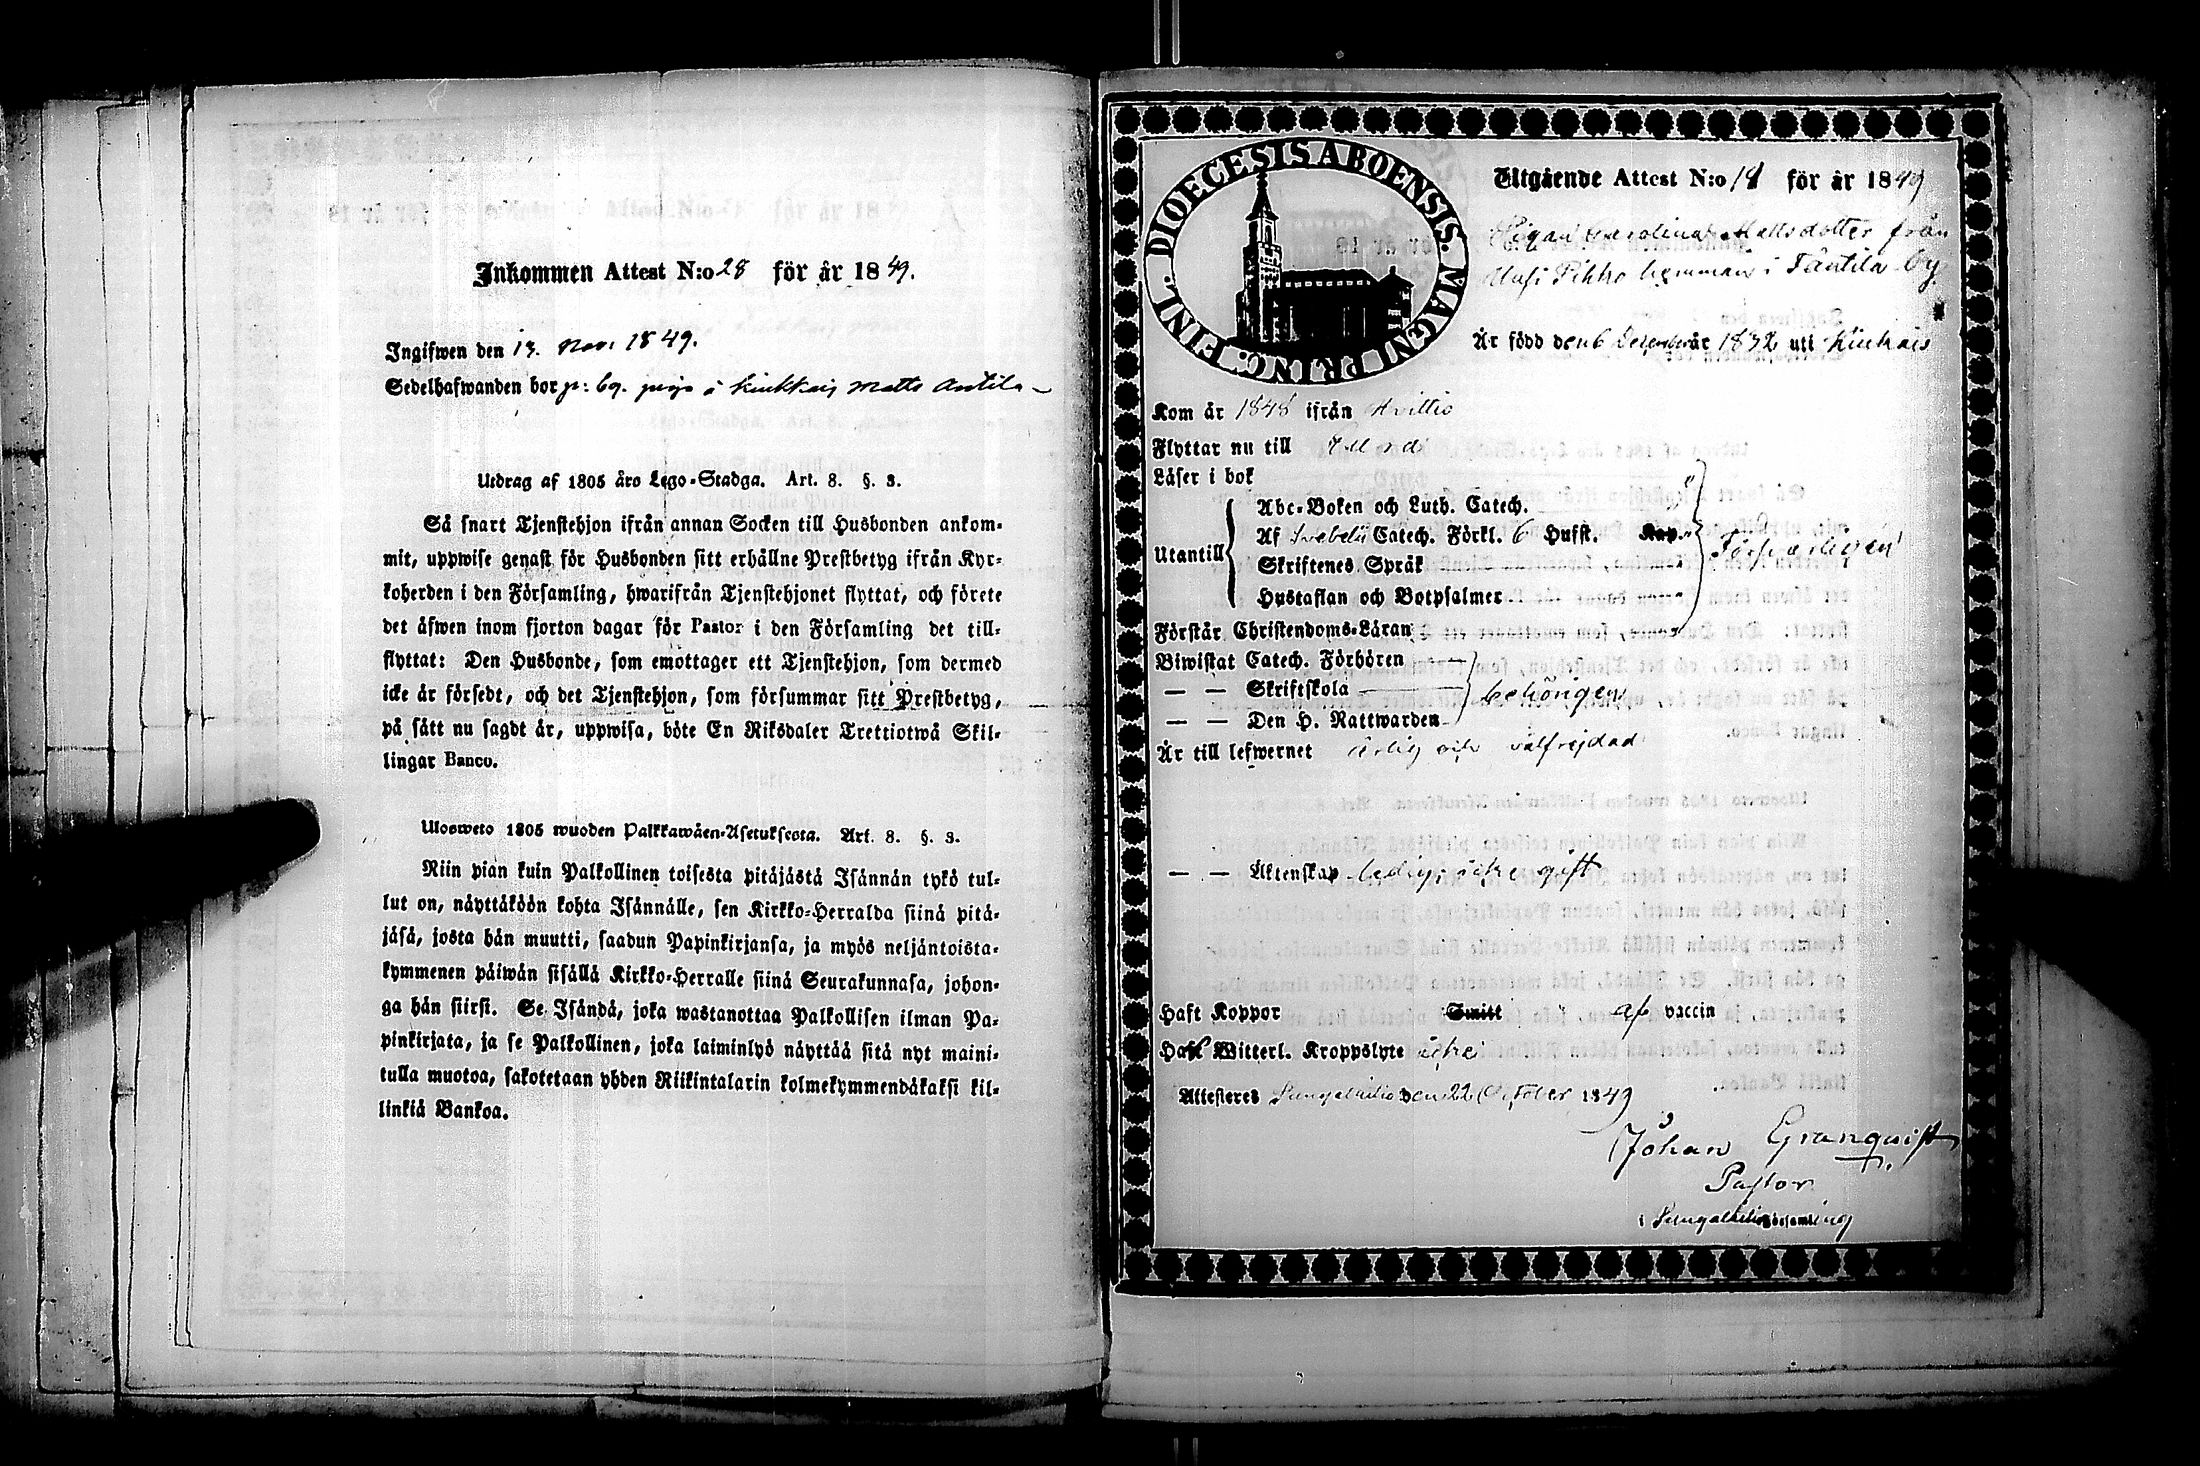 Inkommen Attest N:o 28 för år 1849.
Ingifwen den 13. Nov: 1849.
Sedelhafwanden bor p: 69. piga i Kiukkais Matts Antila
Utdrag af 1805 års Lego-Stadga. Art. 8. §. 3.
Så snart Tjenstehjon ifrån annan Socken till Husbonden ankom-
mit, uppwise genast för Husbonden sitt erhållne Prestbetyg ifrån Kyr-
koherden i den Församling, hwarifrån Tjenstehjonet flyttat, och förete
det äfwen inom fjorton dagar för Pastor i den Församling det till-
flyttat: Den Husbonde, som emottager ett Tjenstehjon, som dermed
icke är försedt, och det Tjenstehjon, som försummar sitt Prestbetyg,
på sätt nu sagdt är, uppwisa, böte En Riksdaler Trettiotwå Skil-
lingar Banco.
Ulosweto 1805 wuoden Palkkawäen-Asetuksesta. Art. 8. §. 3.
Niin pian kuin Palkollinen toisesta pitäjästä Isännän tykö tul-
lut on, näyttäköön kohta Isännälle, sen Kirkko-Herralda siinä pitä-
jäsä, josta hän muutti, saadun Papinkirjansa, ja myös neljäntoista-
kymmenen päiwän sisällä Kirkko-Herralle siinä Seurakunnasa, johon-
ga hän siirsi. Se Isändä, joka wastanottaa Palkollisen ilman Pa-
pinkirjata, ja se Palkollinen, joka laiminlyö näyttää sitä nyt maini-
tulla muotoa, sakotetaan yhden Riikintalarin kolmekymmendäkaksi kil-
linkiä Bankoa.
DIOECESIS ABOENSIS. MAGNI PRINC. FINL.
Utgående Attest N:o 18 för år 1849
Pigan Carolina Mattsdotter från
Pikko hemman i Täntilä by
Är född den 6 December år 1832 uti Kiukais
Kom år 1848 ifrån Hvittis
Flyttar nu till
Läser i bok
Utantill
Abc-Boken och Luth. Catech.
Af Svebelii Catech. Förkl. 6 Hufst. Kap.
Skriftenes Språk
Hustaflan och Botpsalmer
Försvarligen
Förstår Christendoms-Läran
Biwistat Catech. Förhören
— — Skriftskola
— — Den H. Nattwarden
behörigen
Är till lefwernet ärlig och välfrejdad
— — Äktenskap ledig, icke gift
Haft Koppor Smitt af vaccin
Haft Witterl. Kroppslyte icke
Attesteres den 22 October 1849
Johan Granqvist
Pastor
i Församling